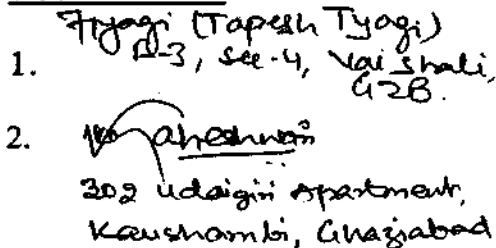 Tyagi (Tapesh Tyagi)
1. D-3, Sec-4, Vaishali,
GZB.
2. Maheshwari
302 Udaigiri Apartment,
Kaushambi, Ghaziabad